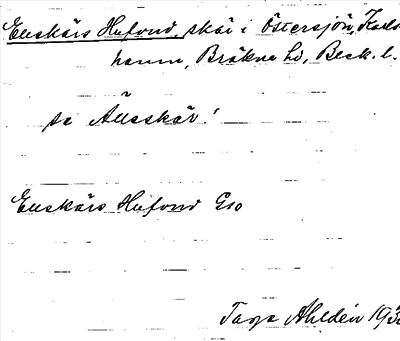 Enskärs Hufvud, skär i Östersjön, Karls
hamn, Bräkne hd, Blek. l.
se Ällesskär!
Enskärs Hufvud G10
Tage Ahldén 193